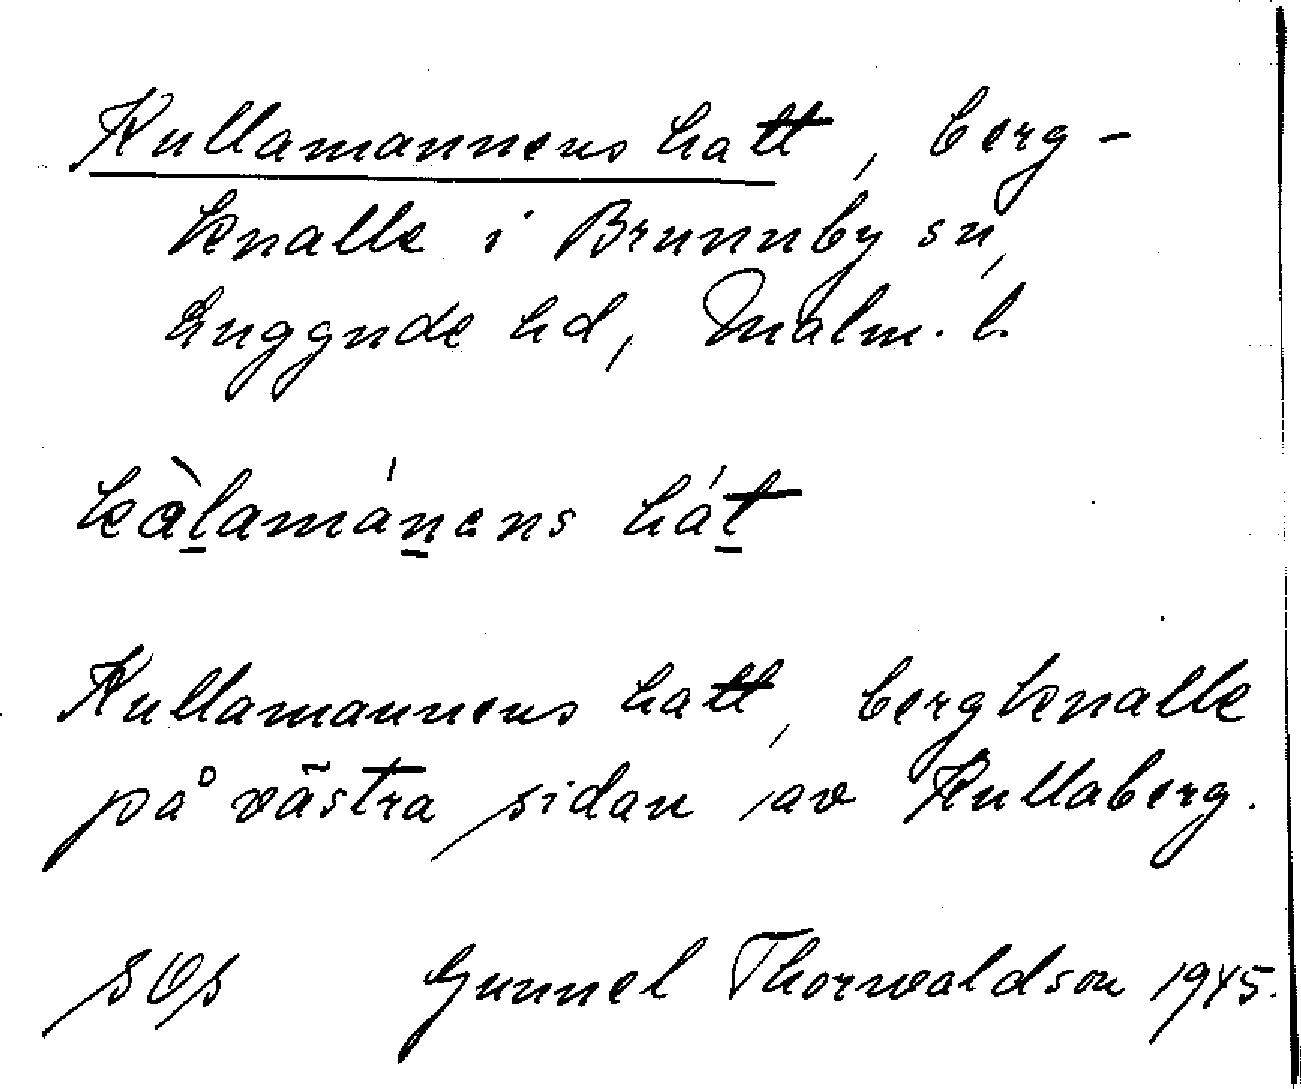 Kullamannens hatt, berg-
knalle i Brunnby sn,
Luggude hd, Malm. l.
kàl̠amán̠ens hát̠
Kullamannens hatt, bergknalle
på västra sidan av Kullaberg.
Gunnel Thorwaldson 1945.